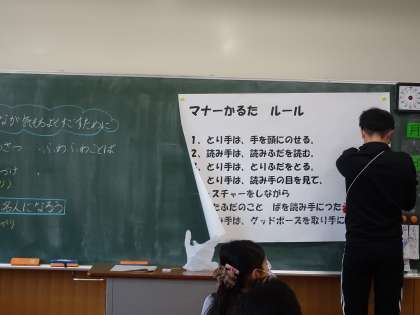 なが気もちよくすごすために
さつ ふわふわことば
つけ
名人になろう
マナーかるた ルール
1. とり手は、手を頭にのせる。
2. 読み手は、読みふだを読む。
3. とり手は、とりふだをとる。
4. とり手は、読み手の目を見て、
スチャーをしながら
たふだのこと ばを読み手につた
り手は、グッドポーズを取り手に
月